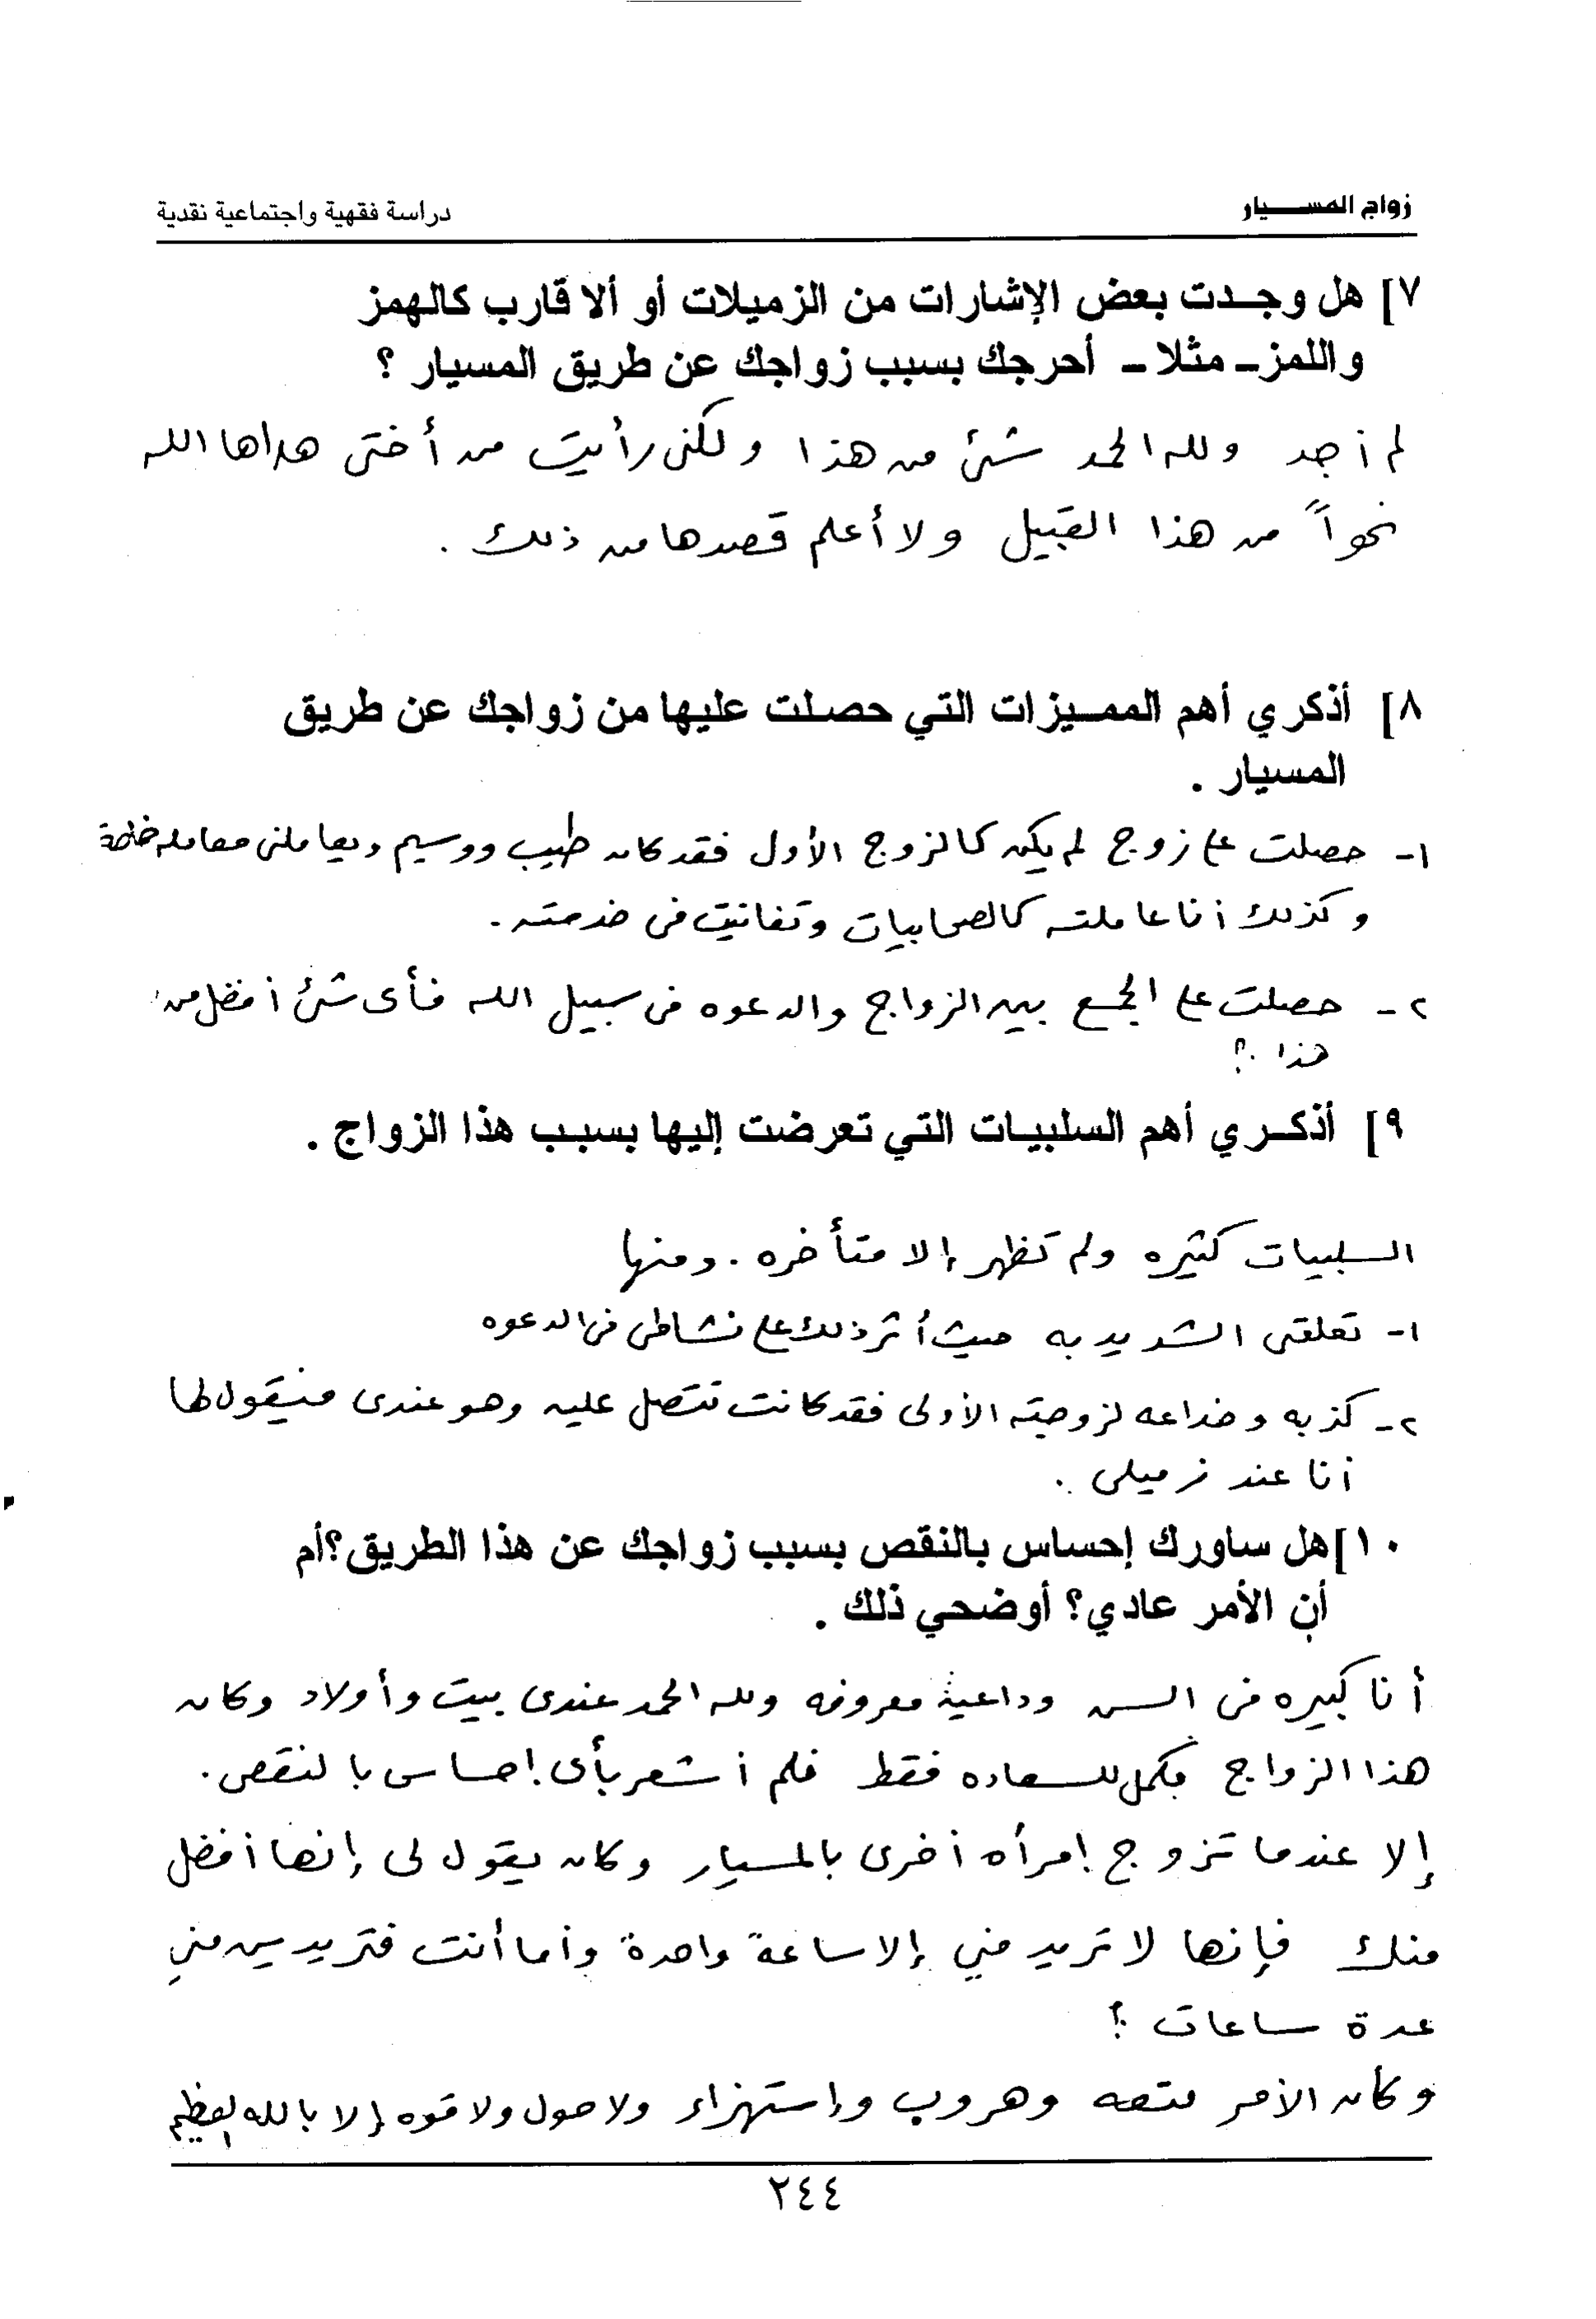 زواج المسيار
دراسة فقهية واجتماعية نقدية
٧] هل وجدت بعض الإشارات من الزميلات أو ألاقارب كالهمز
واللمز ـ مثلا ـ أحرجك بسبب زواجك عن طريق المسيار ؟
لم أجد ولله الحمد شئ من هذا ولكنى رأيت من أختى هداها الله
نحواً من هذا القبيل ولا أعلم قصدها من ذلك .
٨] أذكري أهم المميزات التي حصلت عليها من زواجك عن طريق
المسيار .
١- حصلت على زوج لم يكن كالزوج الأول فقد كان طيب ووسيم ويعاملنى معامله خاصة
وكذلك أنا عاملته كالصحابيات وتفانيت فى خدمته .
٢- حصلت على الجمع بين الزواج والدعوه فى سبيل الله فأى شئ أفضل من
هذا ؟
٩] أذكري أهم السلبيات التي تعرضت إليها بسبب هذا الزواج .
السلبيات كثيره ولم تظهر إلا متأخره . ومنها
١- تعلقى الشديد به حيث أثر ذلك على نشاطى فى الدعوه
٢- كذبه وخداعه لزوجته الأولى فقد كانت تتصل عليه وهو عندى فيقول لها
أنا عند زميلى .
١٠] هل ساورك إحساس بالنقص بسبب زواجك عن هذا الطريق؟ أم
أن الأمر عادي؟ أوضحي ذلك .
أنا كبيره فى السن وداعية معروفه ولله الحمد عندى بيت وأولاد وكان
هذا الزواج مكمل للسعاده فقط فلم أشعر بأى إحساس بالنقص .
إلا عندما تزوج إمرأه أخرى بالمسيار وكان يقول لى إنها أفضل
منك فإنها لا تريد مني إلا ساعة واحدة وأما أنت فتريدين مني
عدة ساعات ؟
وكأن الأمر متعه وهروب وإستهزاء ولا حول ولا قوه إلا بالله العظيم
٢٤٤